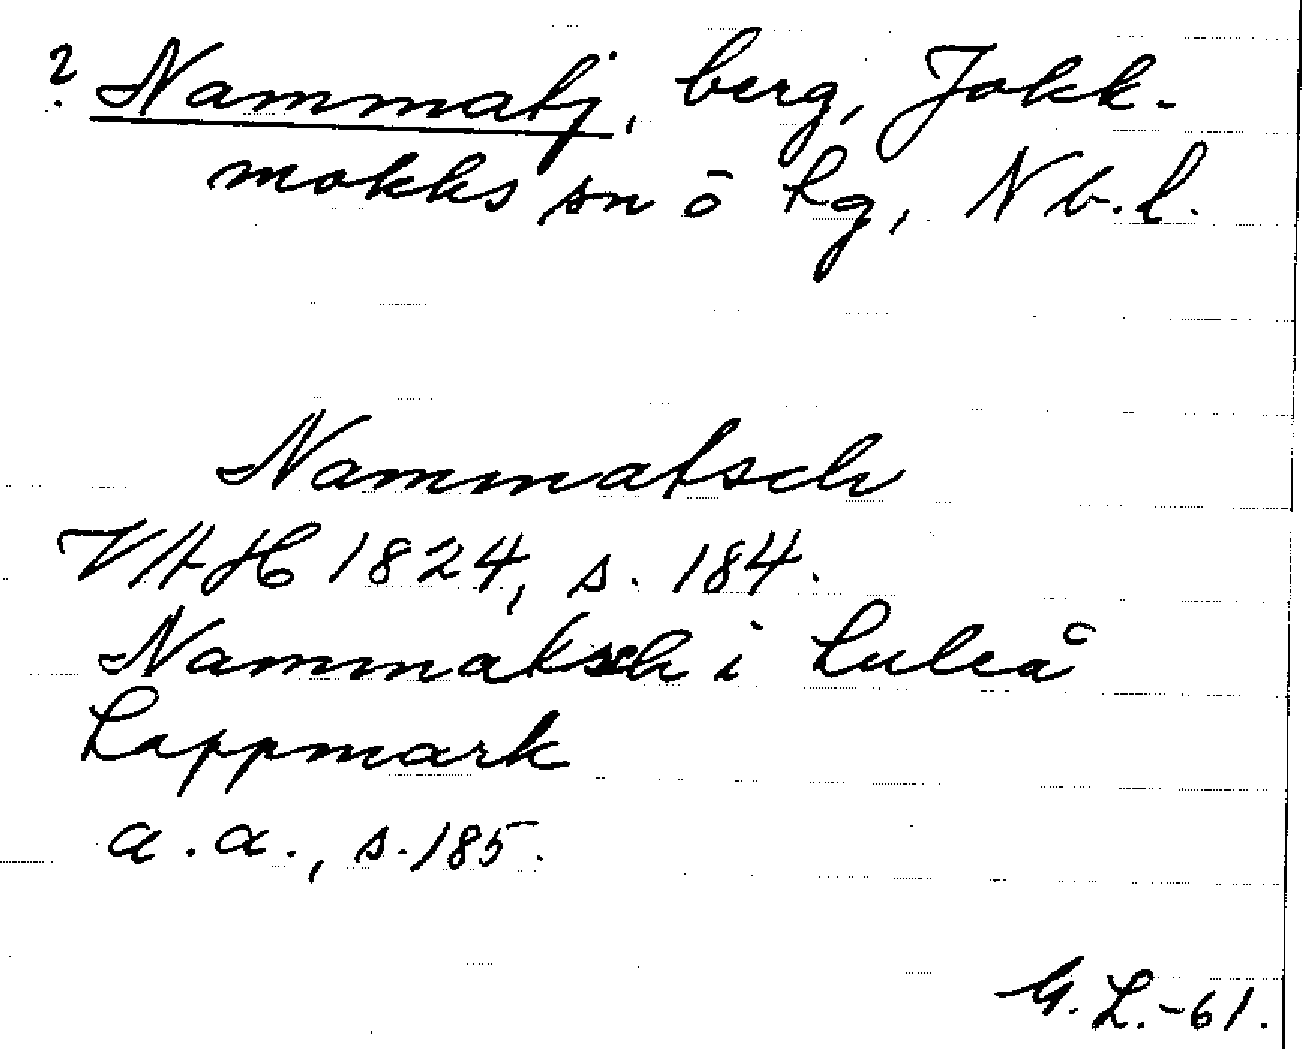 ? Nammatj, berg, Jokk-
mokks sn ö Lg, Nb.l.
Nammatsch
VAH 1824, s. 184.
Nammatsch i Luleå
Lappmark
a.a., s. 185.
G. L. -61.